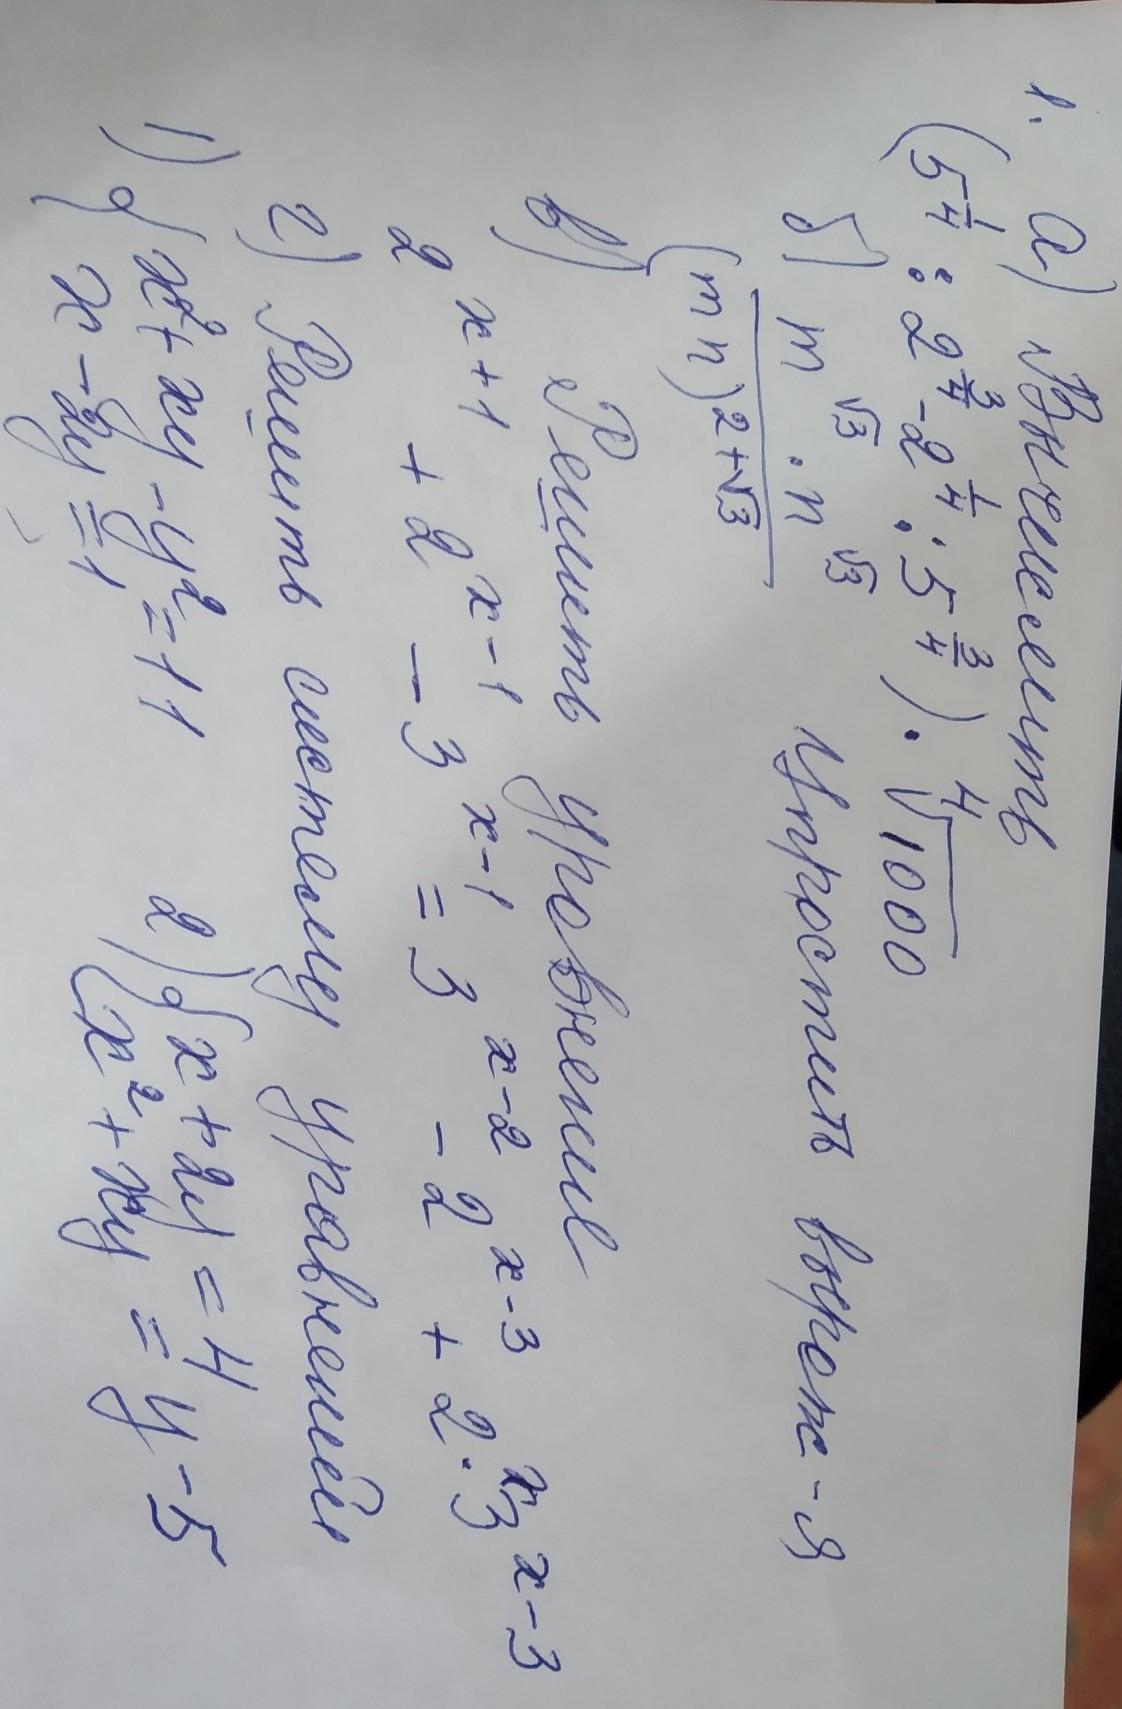 1. а) Вычислить
(5^{1/4} : 2^{3/4} - 2^{1/4} : 5^{3/4}) · ⁴√1000
б) m^{√3} · n^{√3} / (mn)^{2+√3} Упростить выраж-я
в) Решить уровнение
2^{x+1} + 2^{x-1} - 3^{x-1} = 3^{x-2} - 2^{x-3} + 2·3^{x-3}
г) Решить систему уравнений
1) { x² + xy - y² = 11 2) { x + 2y = 4
x - 2y = 1 x² + xy = y - 5